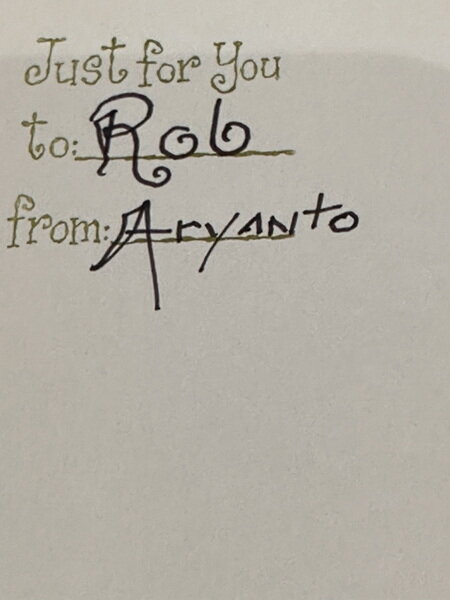 Just for You
to: Rob
from: Aryanto